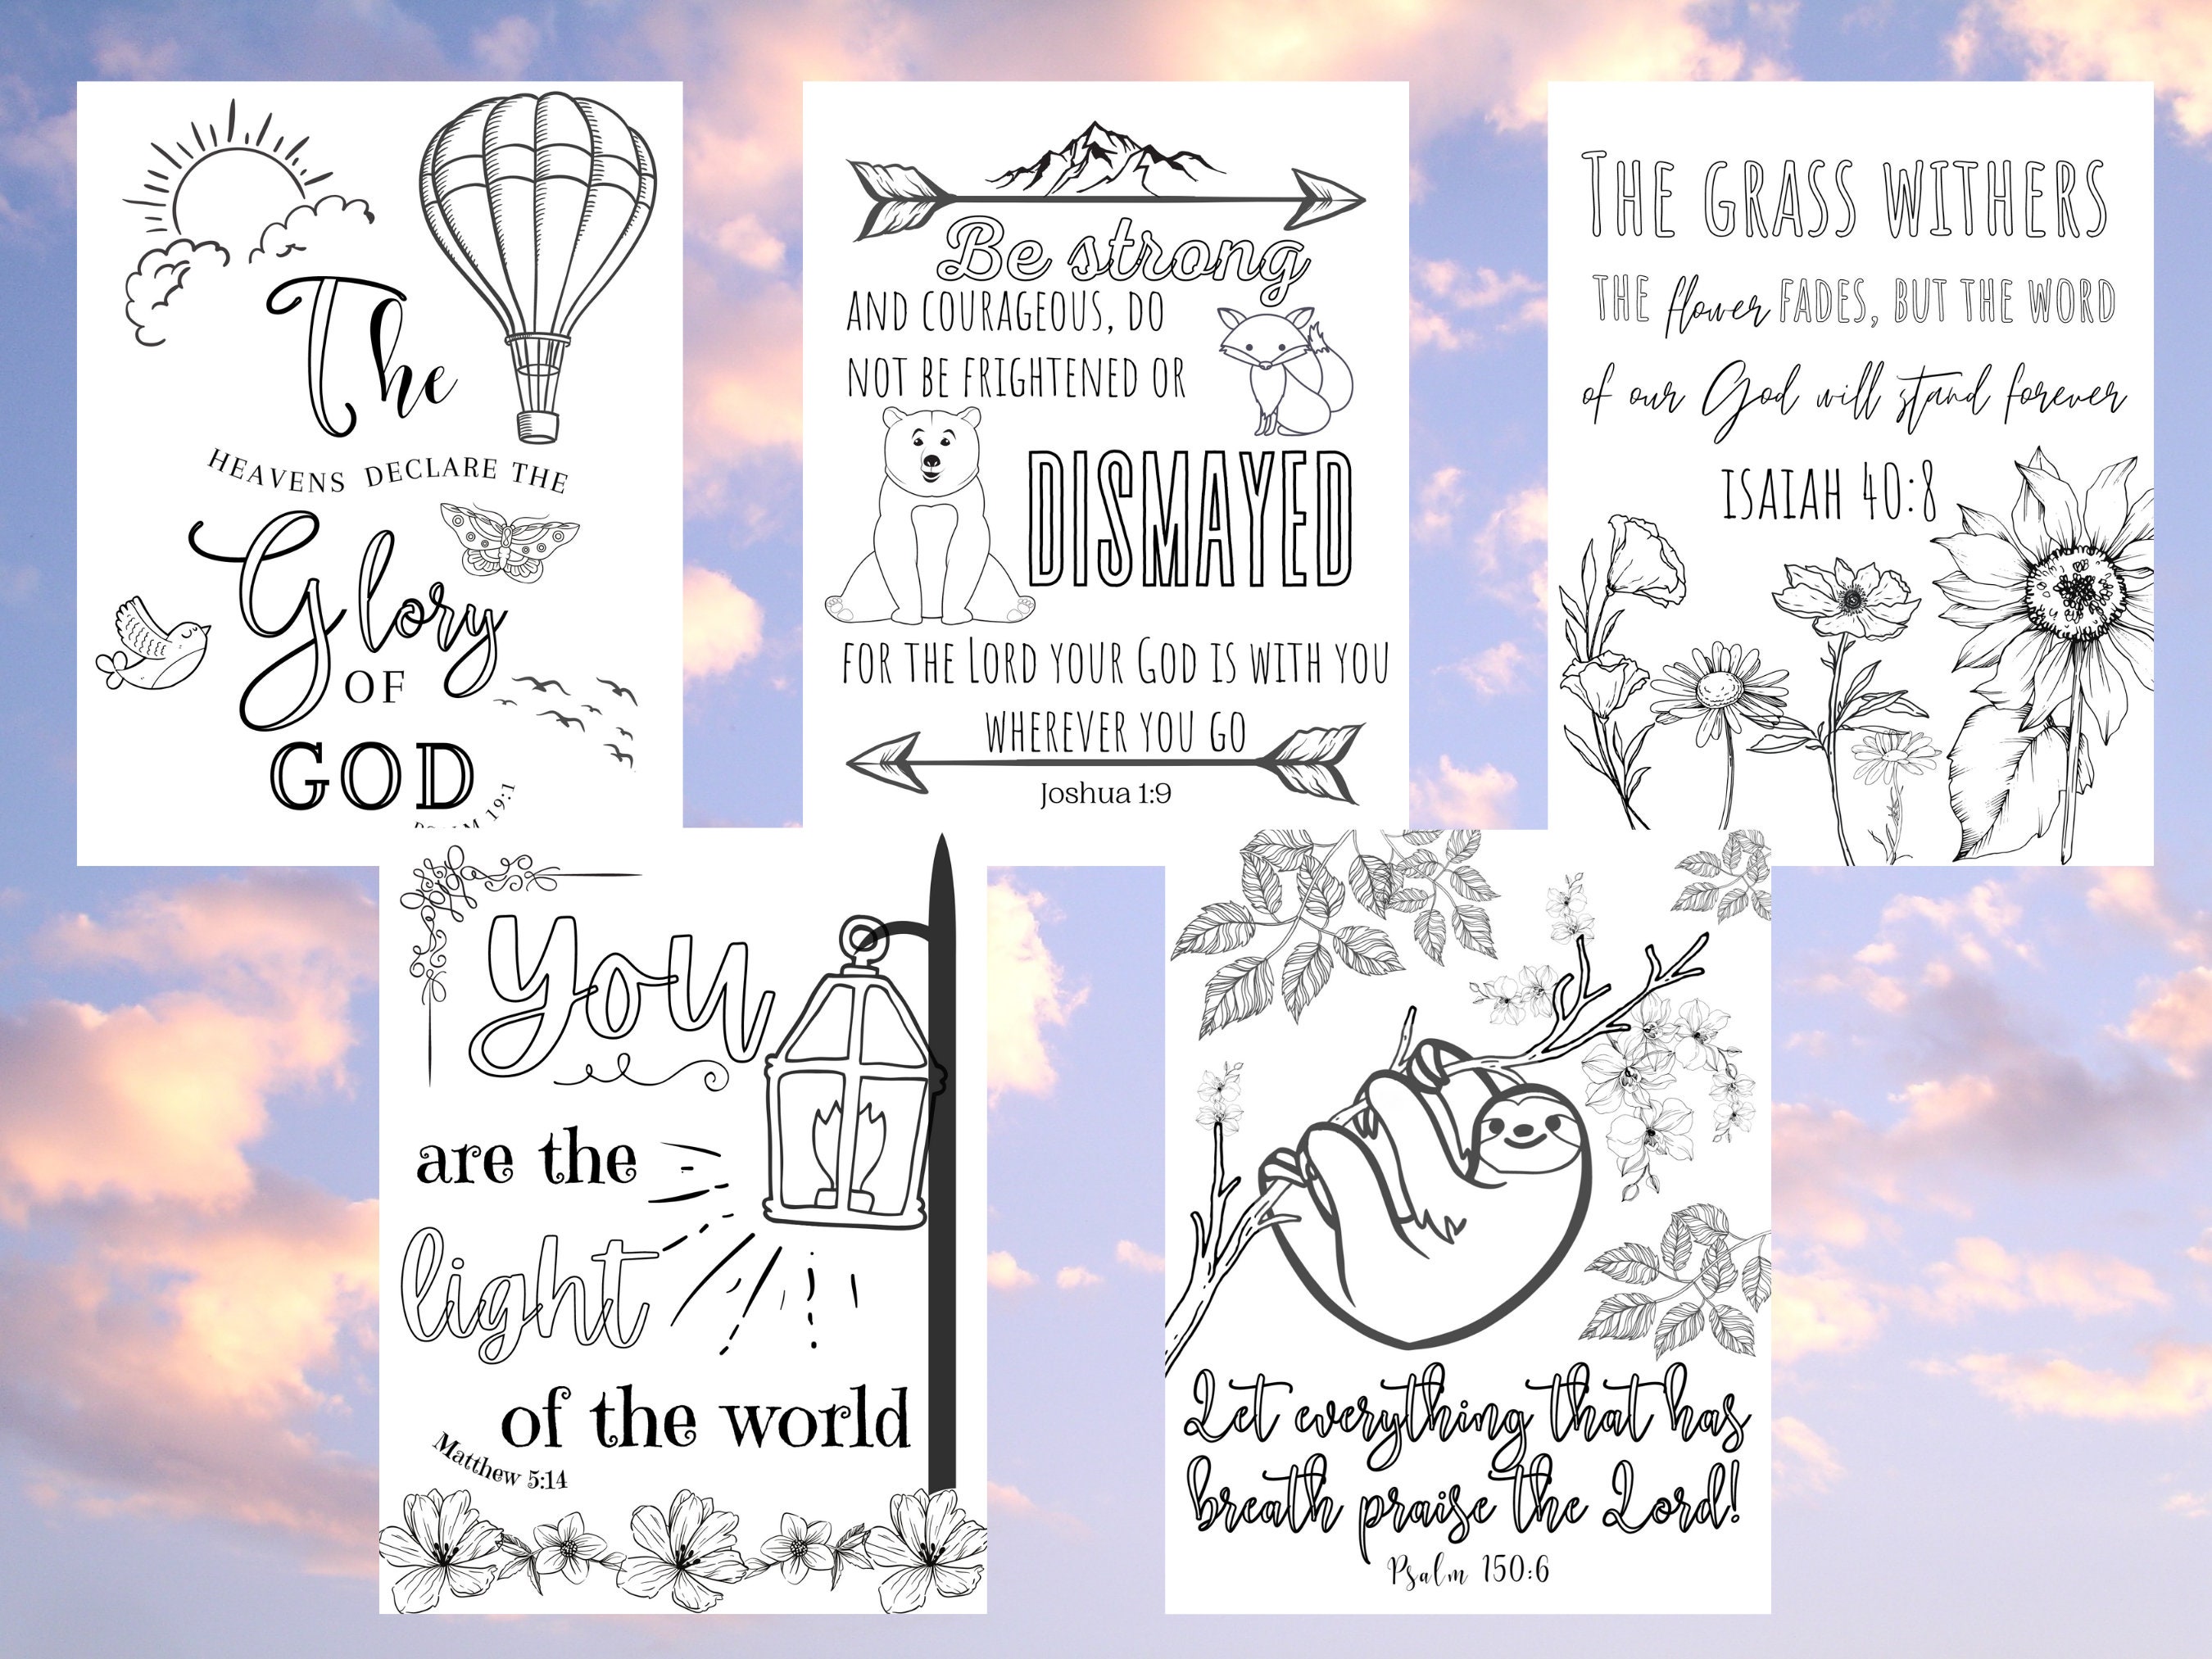 The
HEAVENS DECLARE THE
Glory
OF
GOD
19:1
Be strong
AND COURAGEOUS, DO
NOT BE FRIGHTENED OR
DISMAYED
FOR THE LORD YOUR GOD IS WITH YOU
WHEREVER YOU GO
Joshua 1:9
THE GRASS WITHERS
THE flower FADES, BUT THE WORD
of our God will stand forever
ISAIAH 40:8
you
are the
light
of the world
Matthew 5:14
Let everything that has
breath praise the Lord!
Psalm 150:6